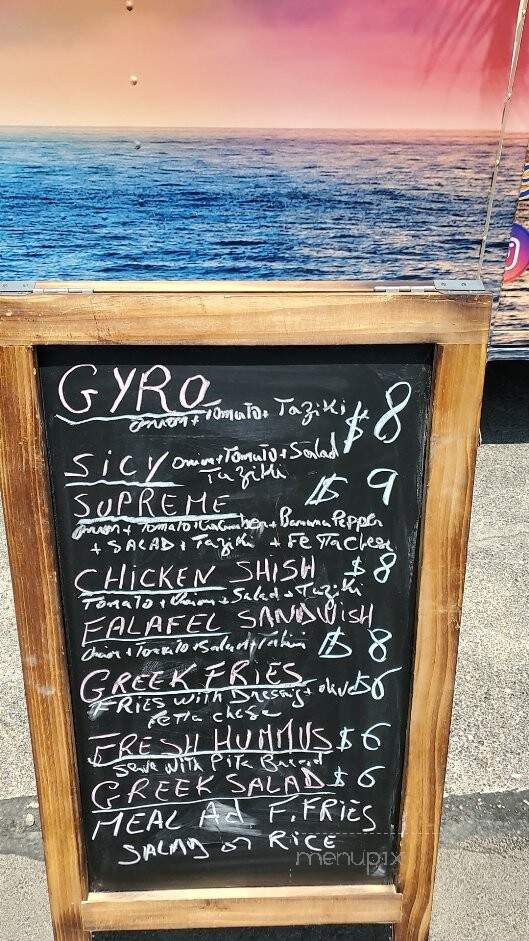 GYRO
onion + Tomato + Taziki $8
SiCY Onion + Tomato + Salad
Taziki
SUPREME $9
onion + Tomato + Cucumber + Banana Pepper
+ SALAD + Taziki + FeTTa Chese
CHiCKEN SHiSH $8
Tomato + Onion + Salad + Taziki
FALAFEL SANDWiSH
Onion + Tomato + Salad + Tahini $8
GREEK FRiES $6
FRies with Dressing + olives
FeTTa chese
FRESH HUMMUS $6
Serve with PiTa Bread
GREEK SALAD $6
MEAL Ad F.FRiES
or RiCE
menupix